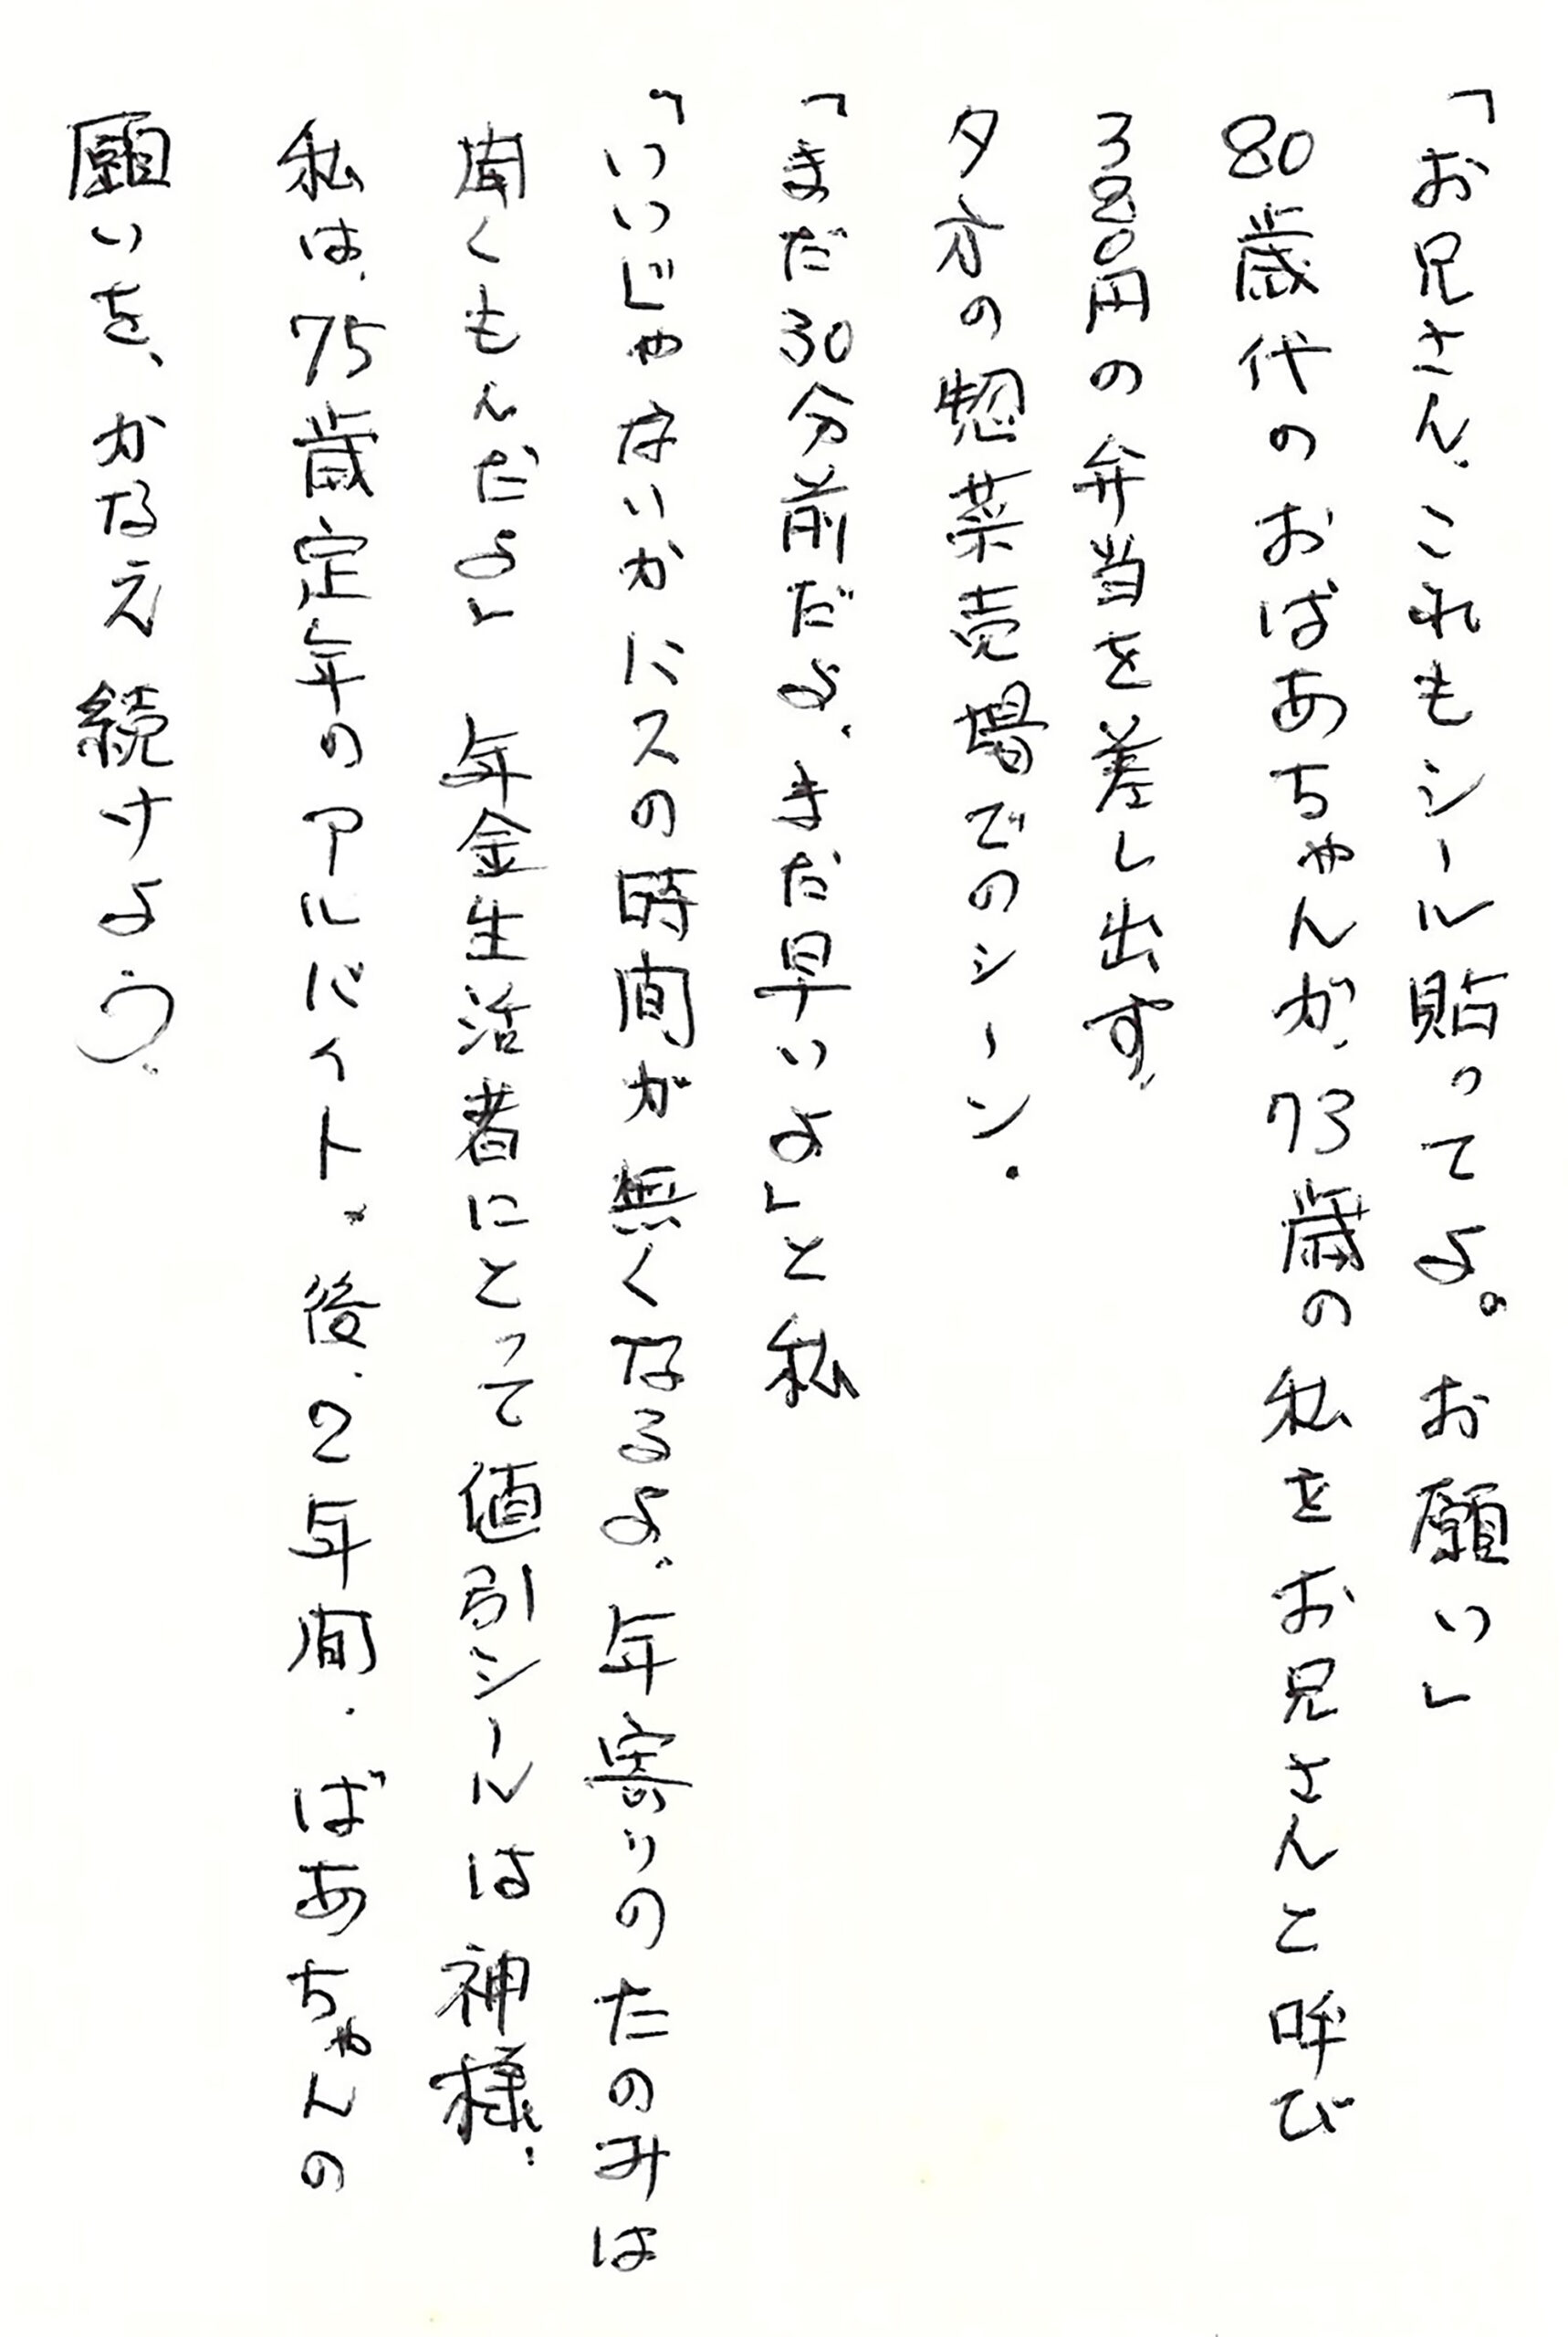 「お兄さん、これもシール貼ってよ。お願い」
80歳代のおばあちゃんが、73歳の私をお兄さんと呼び
380円の弁当を差し出す。
夕方の惣菜売場でのシーン。
「まだ30分前だよ、まだ早いよ」と私
「いいじゃないか バスの時間が無くなるよ。年寄りのたのみは
聞くもんだよ」 年金生活者にとって値引シールは神様。
私は、75歳定年のアルバイト。後、2年間、ばあちゃんの
願いを、かなえ続けよう。